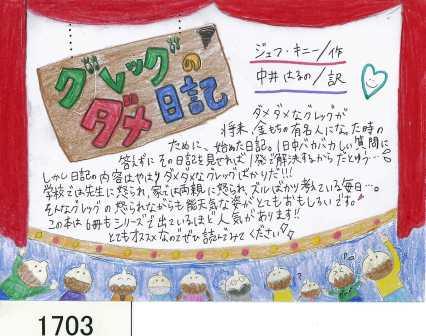 グレッグの
ダメ日記
ジェフ・キニー/作
中井はるの/訳
ダメダメなグレッグが
将来、金もちの有名人になった時の
ために、始めた日記。1日中バカバカしい質問に
答えずにその日記を見せれば1発で解決するからだとゆう…。
しかし日記の内容はやはりダメダメなグレッグばかりだ!!!
学校では先生に怒られ、家では両親に怒られ、ズルばかり考えている毎日…。
そんなグレッグの怒られながらも能天気な姿がとてもおもしろいです。
この本は6冊もシリーズで出ているほど人気があります!!
とてもオススメなのでぜひ読んでみてください
1703